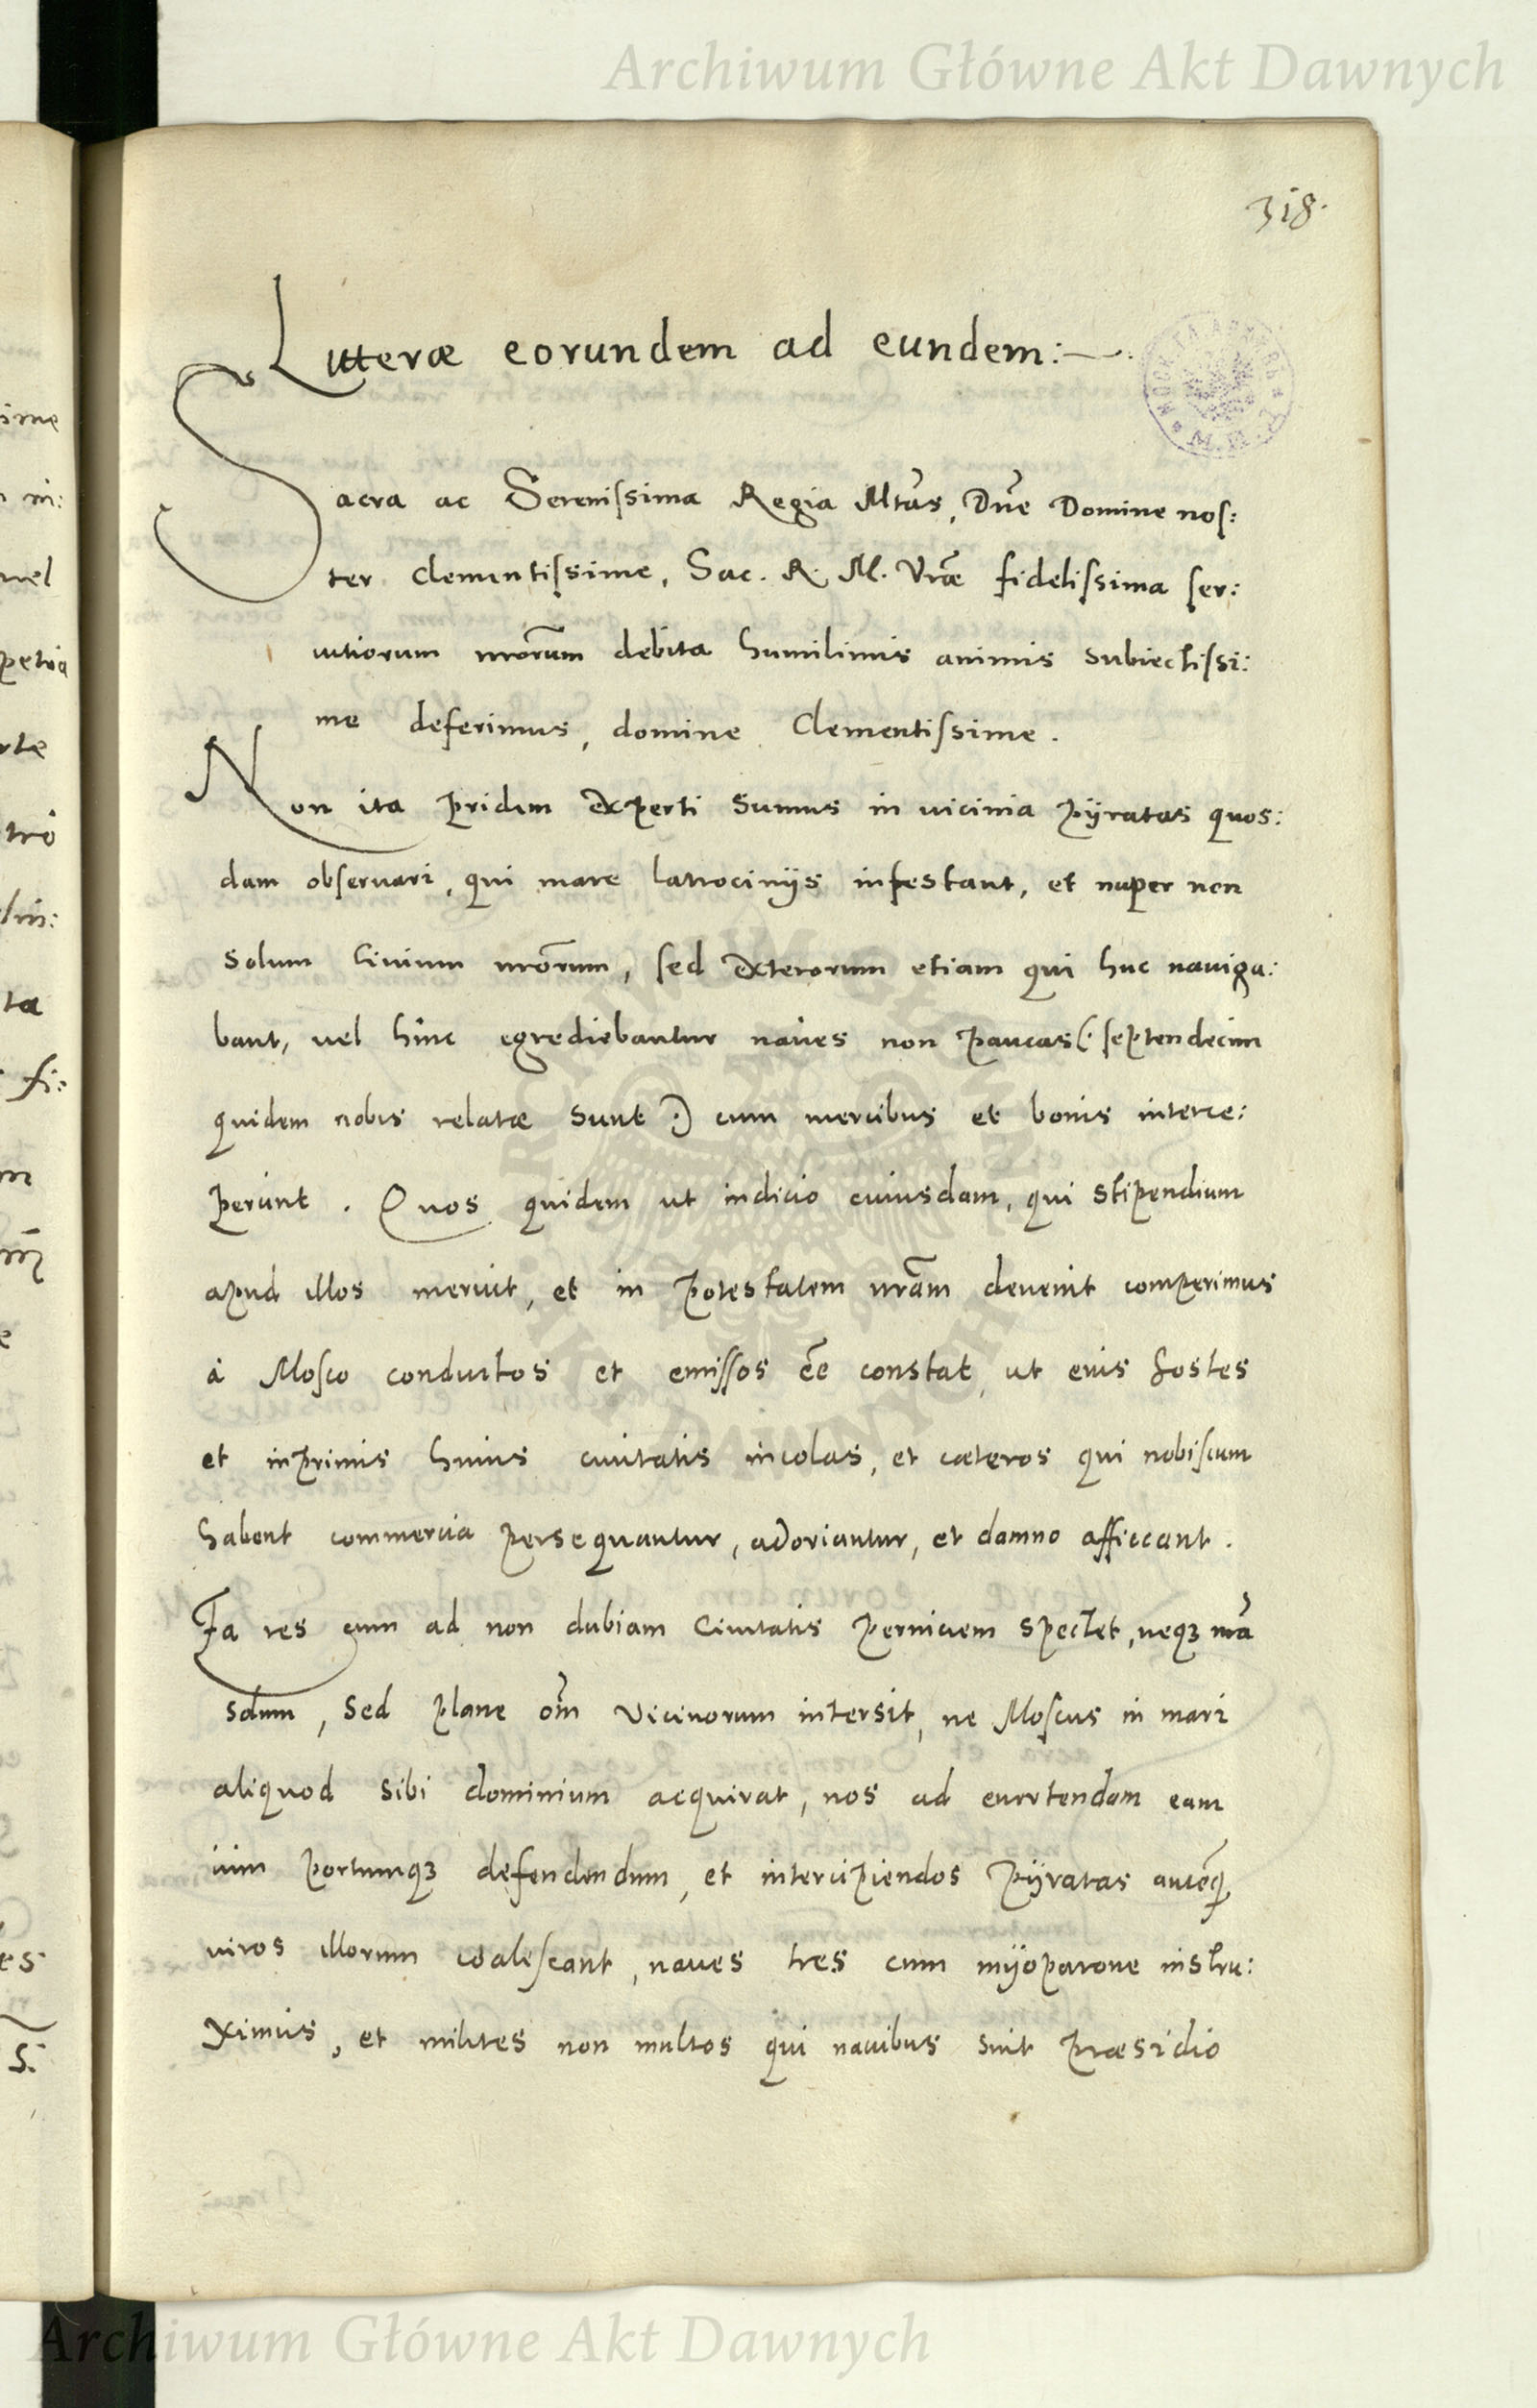 Archiwum Główne Akt Dawnych
318.
Litteræ eorundem ad eundem:
Sacra ac Serenissima Regia Mtas, Dne Domine nos:
ter clementissime, Sac. R. M. Vræ fidelissima ser:
uitiorum nrorum debita humilimis animis subiectissi:
me deferimus, domine Clementissime.
Non ita pridem experti sumus in uicinia pÿratas quos:
dam obseruari, qui mare latrocinijs infestant, et nuper non
solum Ciuium nrorum, sed exterorum etiam qui huc nauiga:
bant, uel hinc egrediebantur naues non paucas (: septendecim
quidem nobis relatæ sunt :) cum mercibus et bonis interce:
perunt. Quos quidem ut indicio cuiusdam, qui stipendium
apud illos meruit, et in potestatem nram deuenit comperimus
à Mosco conductos et emissos ee constat, ut eius hostes
et inprimis huius ciuitatis incolas, et cæteros qui nobiscum
habent commercia persequantur, adoriantur, et damno afficcant.
Ea res cum ad non dubiam Ciuitatis perniciem spectet, neq3 nra
solum, sed plane om uicinorum intersit, ne Moscus in mari
aliquod sibi dominium acquirat, nos ad euertendam eam
uim portumq3 defendendum, et intercipiendos pÿratas anteq
uires illorum coalescant, naues tres cum mÿoparone instru:
ximus, et milites non multos qui nauibus sint præsidio
Archiwum Główne Akt Dawnych